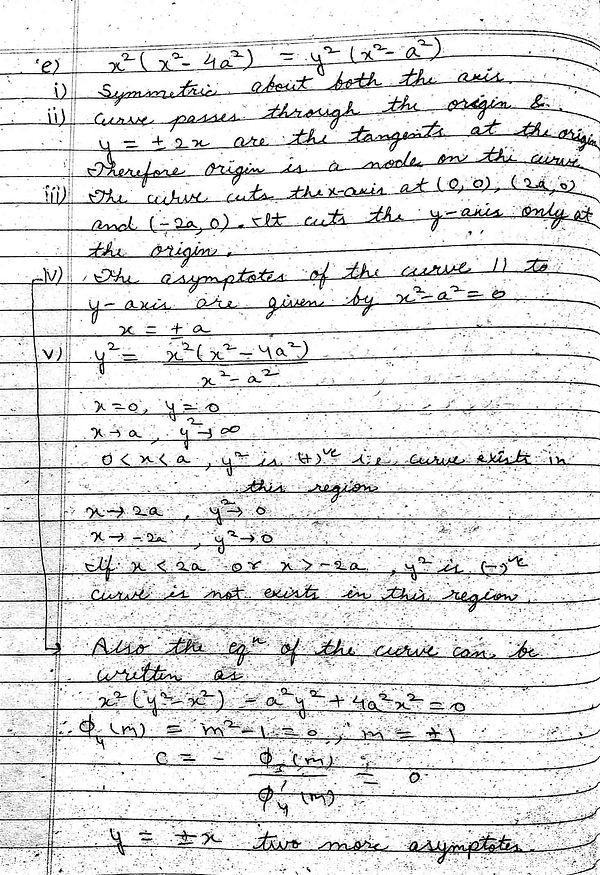 e) x²(x²- 4a²) = y²(x²- a²)
i) Symmetric about both the axis.
ii) Curve passes through the origin &
y = ± 2x are the tangents at the origin
Therefore origin is a node on the curve
iii) The curve cuts the x-axis at (0,0), (2a,0)
and (-2a,0). It cuts the y-axis only at
the origin.
iv) The asymptotes of the curve || to
y-axis are given by x²-a²=0
x = ± a
v) y² = x²(x²-4a²)
x²-a²
x=0, y=0
x→a, y²→∞
0<x<a, y² is (+)ve i.e. curve exists in
this region
x→2a, y²→0
x→-2a, y²→0
If x<2a or x>-2a, y² is (-)ve
curve is not exists in this region.
Also the eqn of the curve can be
written as
x²(y²-x²) - a²y² + 4a²x² = 0
ϕ₄(m) = m²-1 = 0, m = ±1
c = - ϕ₃(m) = 0
ϕ₄'(m)
y = ±x two more asymptotes.